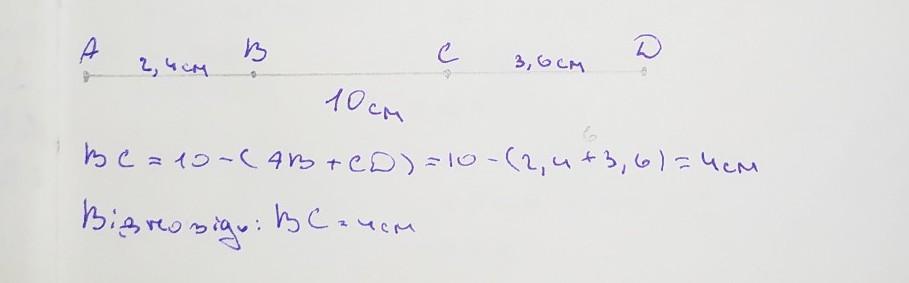 A B C D
2,4см 3,6см
10см
6
BC = 10 - (AB + CD) = 10 - (2,4 + 3,6) = 4см
Відповідь: BC = 4см